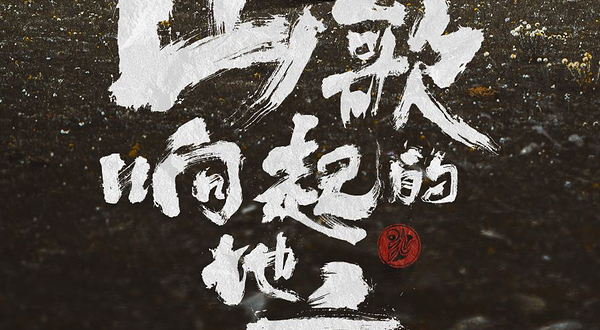 山歌
响起的
地